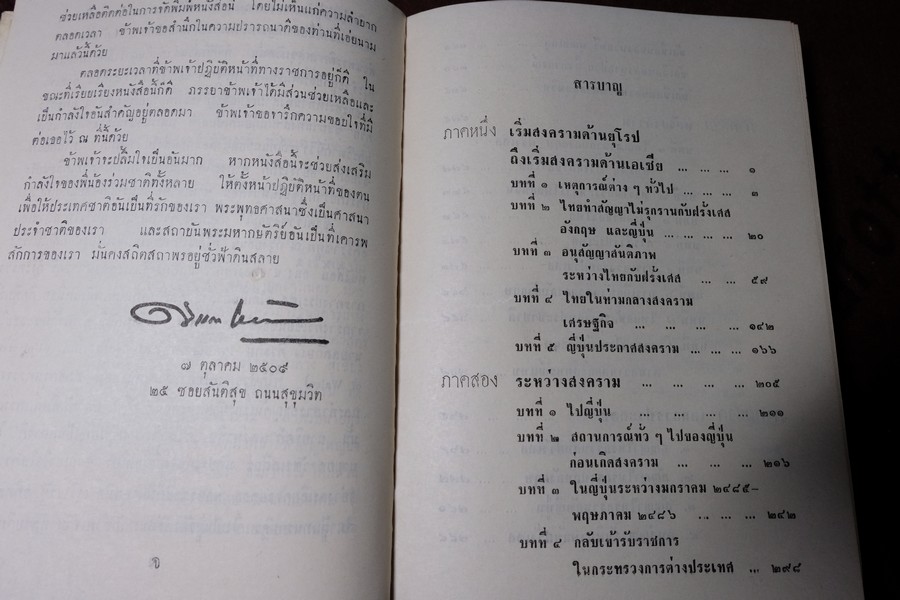 ช่วยเหลือติดต่อในการจัดพิมพ์หนังสือนี้ โดยไม่เห็นแก่ความลำบาก
ตลอดเวลา ข้าพเจ้าขอสำนึกในความปรารถนาดีของท่านที่เอ่ยนาม
มาแล้วนี้ด้วย
ตลอดระยะเวลาที่ข้าพเจ้าปฏิบัติหน้าที่ทางราชการอยู่ก็ดี ใน
ขณะที่เรียบเรียงหนังสือนี้ก็ดี ภรรยาข้าพเจ้าได้มีส่วนช่วยเหลือและ
เป็นกำลังใจอันสำคัญอยู่ตลอดมา ข้าพเจ้าขอจารึกความขอบใจที่มี
ต่อเธอไว้ ณ ที่นี้ด้วย
ข้าพเจ้าจะปลื้มใจเป็นอันมาก หากหนังสือนี้จะช่วยส่งเสริม
กำลังใจของพี่น้องร่วมชาติทั้งหลาย ให้ตั้งหน้าปฏิบัติหน้าที่ของตน
เพื่อให้ประเทศชาติอันเป็นที่รักของเรา พระพุทธศาสนาซึ่งเป็นศาสนา
ประจำชาติของเรา และสถาบันพระมหากษัตริย์อันเป็นที่เคารพ
สักการของเรา มั่นคงสถิตสถาพรอยู่ชั่วฟ้าดินสลาย
๗ ตุลาคม ๒๕๐๙
๒๕ ซอยสันติสุข ถนนสุขุมวิท
สารบาญ
ภาคหนึ่ง เริ่มสงครามด้านยุโรป
ถึงเริ่มสงครามด้านเอเซีย ... ... ... ๑
บทที่ ๑ เหตุการณ์ต่าง ๆ ทั่วไป ... ... ... ๓
บทที่ ๒ ไทยทำสัญญาไม่รุกรานกับฝรั่งเศส
อังกฤษ และญี่ปุ่น ... ... ... ... ๒๐
บทที่ ๓ อนุสัญญาสันติภาพ
ระหว่างไทยกับฝรั่งเศส ... ... ๕๙
บทที่ ๔ ไทยในท่ามกลางสงคราม
เศรษฐกิจ ... ... ... ... ๑๔๒
บทที่ ๕ ญี่ปุ่นประกาศสงคราม ... ... ... ๑๖๖
ภาคสอง ระหว่างสงคราม ... ... ... ... ๒๐๕
บทที่ ๑ ไปญี่ปุ่น ... ... ... ... ๒๑๑
บทที่ ๒ สถานการณ์ทั่ว ๆ ไปของญี่ปุ่น
ก่อนเกิดสงคราม ... ... ... ๒๑๖
บทที่ ๓ ในญี่ปุ่นระหว่างมกราคม ๒๔๘๕–
พฤษภาคม ๒๔๘๖ ... ... ... ๒๔๒
บทที่ ๔ กลับเข้ารับราชการ
ในกระทรวงการต่างประเทศ ... ๒๙๘